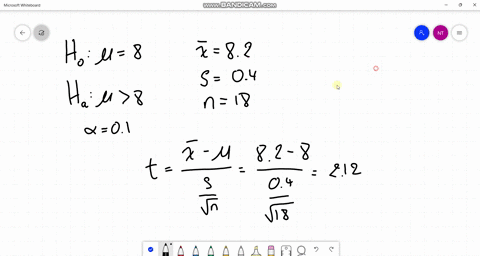 Microsoft Whiteboard
WWW.BANDICAM.COM
NT
H₀: μ = 8
Hₐ: μ > 8
α = 0.1
x̄ = 8.2
S = 0.4
n = 18
t = (x̄ - μ) / (S / √n) = (8.2 - 8) / (0.4 / √18) = 2.12